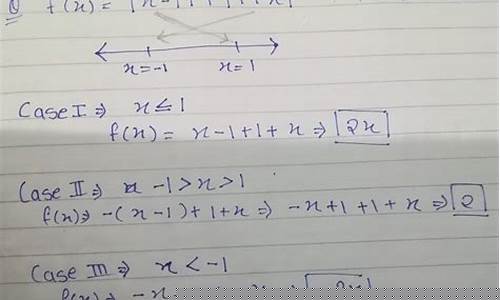 Q f(x) = |x-1|+|1+x|
x=-1 x=1
Case I ⇒ x ≤ 1
f(x) = x-1+1+x ⇒ 2x
Case II ⇒ x -1>x>1
f(x) ⇒ -(x-1)+1+x ⇒ -x+1+1+x ⇒ 2
Case III ⇒ x < -1